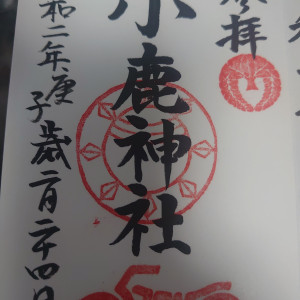 参拝
小鹿神社
和二年庚子歳二月二十四日